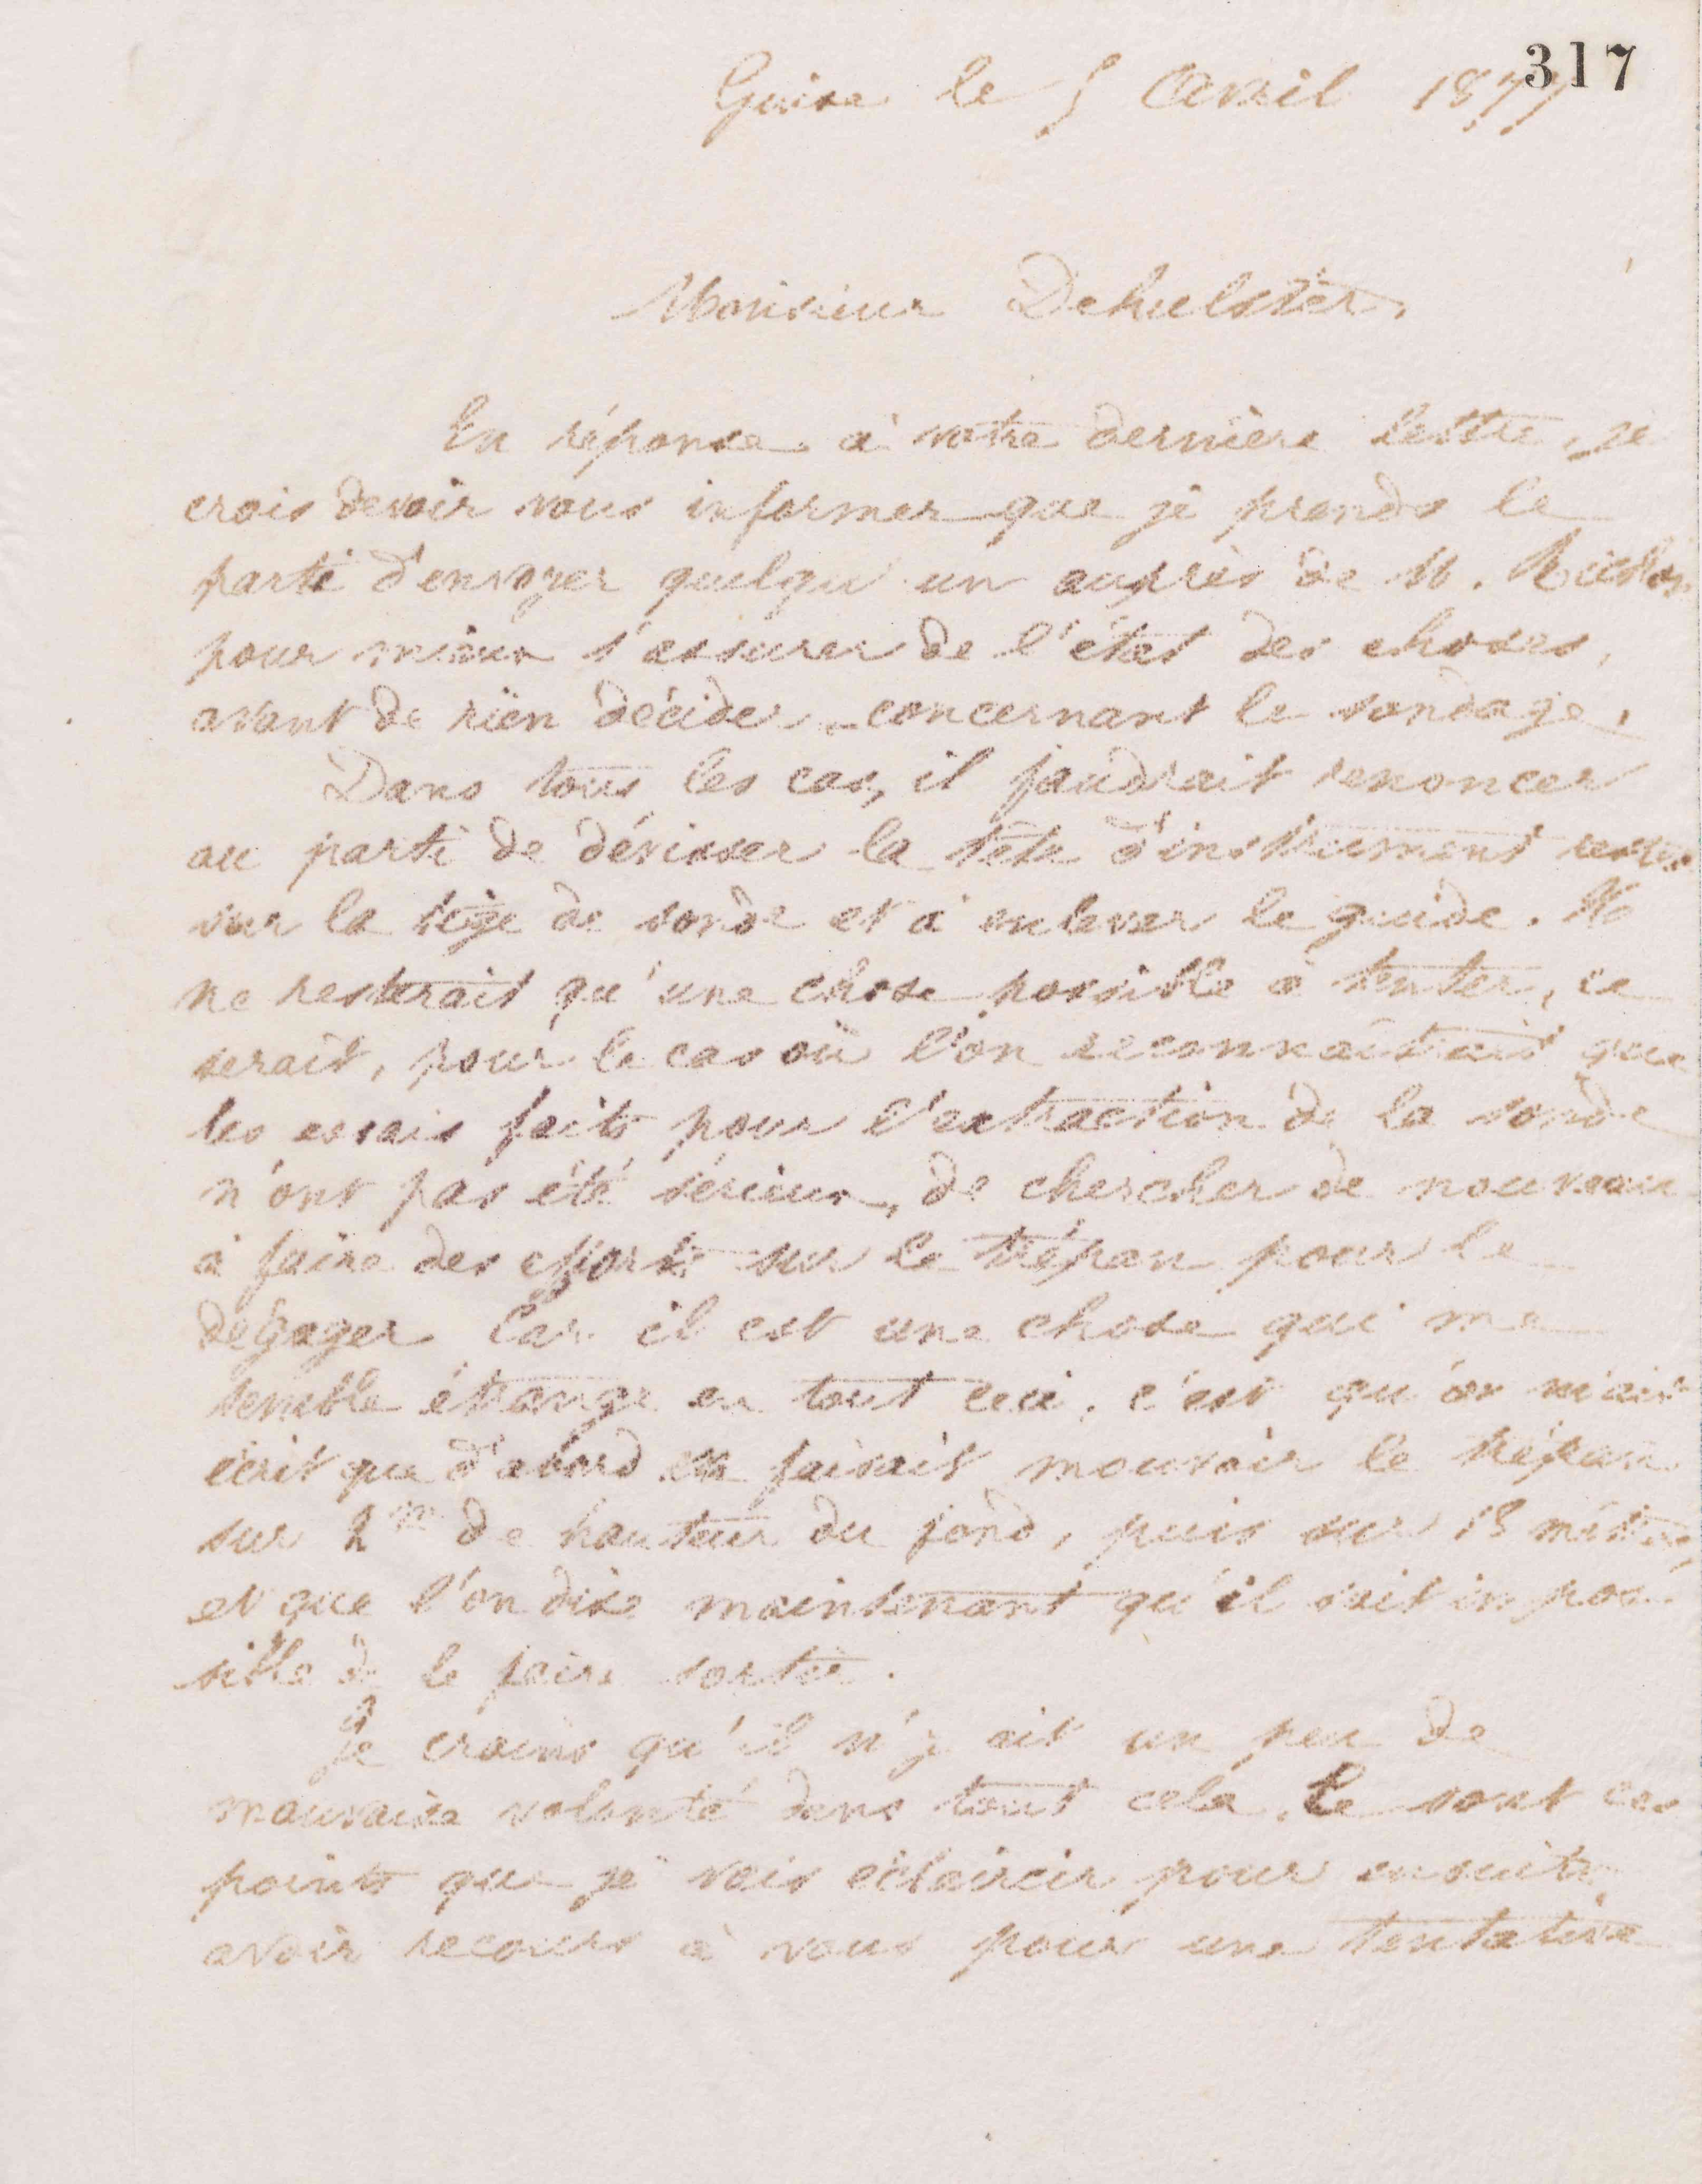 317
Guise le 5 Avril 1877
Monsieur Dehulster,
En réponse à votre dernière lettre, je
crois devoir vous informer que je prends le
parti d'envoyer quelqu'un auprès de M.
pour mieux s'assurer de l'état des choses,
avant de rien décider concernant le sondage.
Dans tous les cas, il faudrait renoncer
au parti de dévisser la tête d'instrument
sur la tige de sonde et à enlever le guide. Il
ne resterait qu'une chose possible à tenter, ce
serait, pour le cas où l'on reconnaîtrait que
les essais faits pour l'extraction de la sonde
n'ont pas été sérieux, de chercher de nouveau
à faire des efforts sur le trépan pour le
dégager Car il est une chose qui me
semble étrange en tout ceci, c'est qu'on m'ait
écrit que d'abord on faisait mouvoir le trépan
sur 2m de hauteur du fond, puis sur 13 mètres,
et que l'on dise maintenant qu'il soit impos-
sible de le faire sortir.
Je crains qu'il n'y ait un peu de
mauvaise volonté dans tout cela. Ce sont ces
points que je vais éclaircir pour ensuite
avoir recours à vous pour une tentative